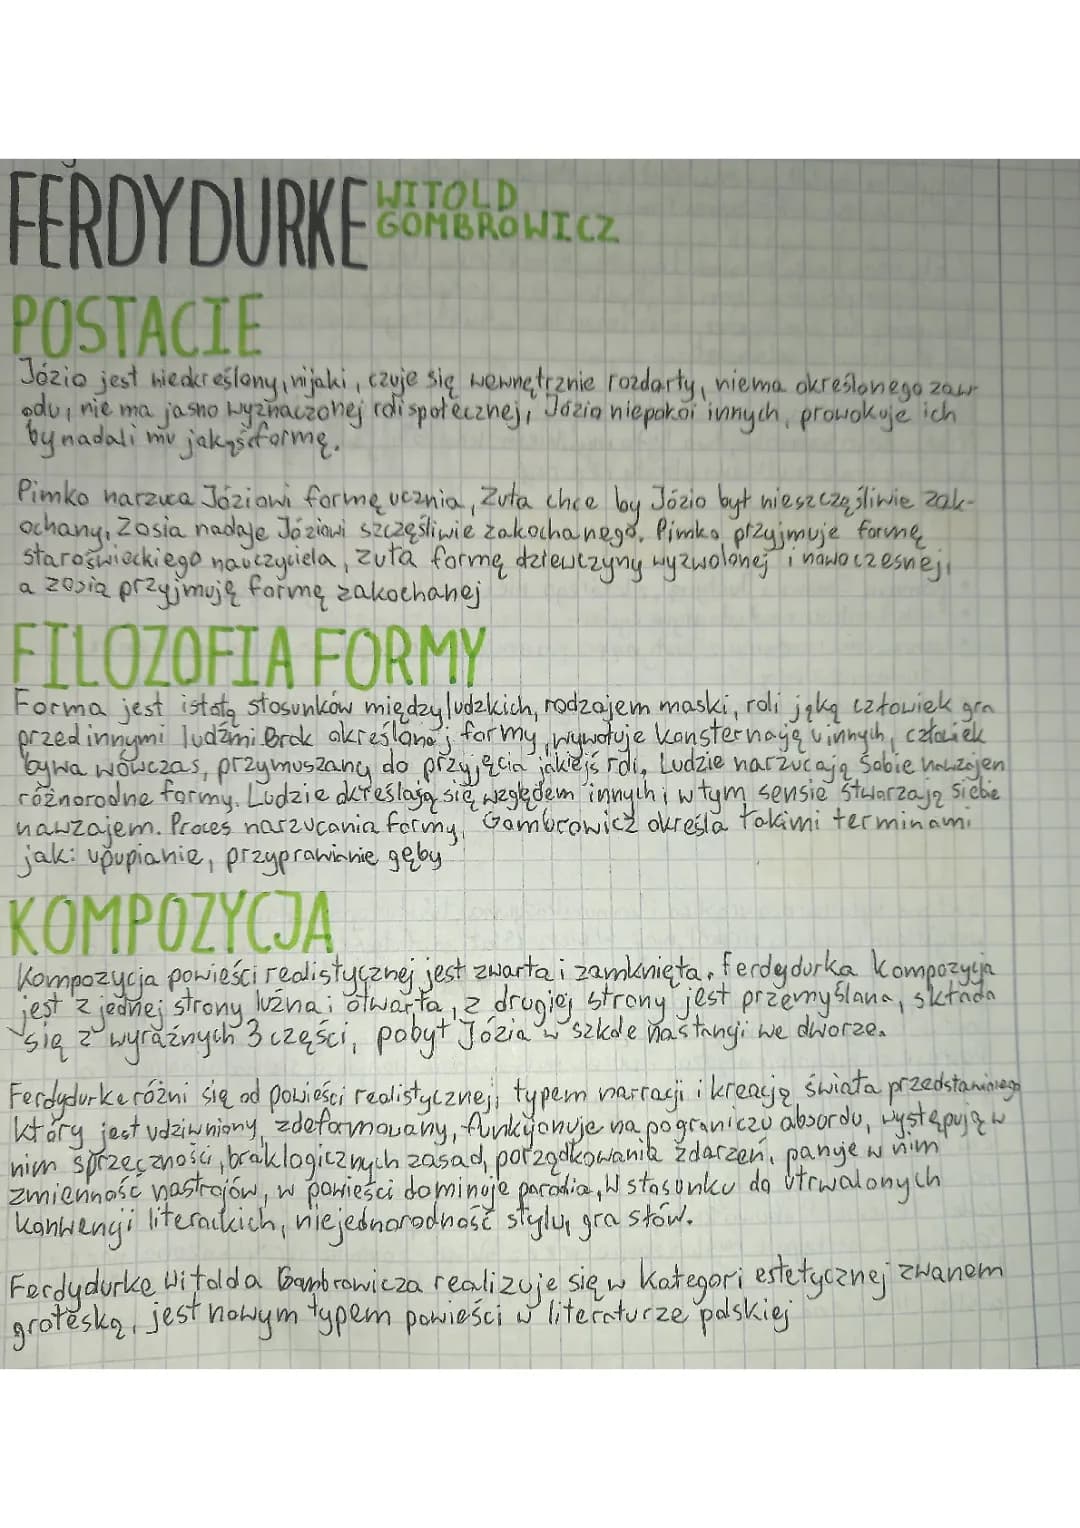 FERDYDURKE WITOLD
GOMBROWICZ
POSTACIE
Józio jest nieokreślony, nijaki, czuje się wewnętrznie rozdarty, niema określonego zaw-
odu, nie ma jasno wyznaczonej roli społecznej, Józio niepokoi innych, prowokuje ich
by nadali mu jakąś formę.
Pimko narzuca Józiowi formę ucznia, Zuta chce by Józio był nieszczęśliwie zak-
ochany, Zosia nadaje Józiowi szczęśliwie zakochanego. Pimko przyjmuje formę
staroświeckiego nauczyciela, zuta formę dziewczyny wyzwolonej i nowoczesnej,
a zosia przyjmują formę zakochanej
FILOZOFIA FORMY
Forma jest istotą stosunków międzyludzkich, rodzajem maski, roli jaką człowiek gra
przed innymi ludźmi. Brak określonej formy wywołuje konsternację u innych, człowiek
bywa wówczas, przymuszany do przyjęcia jakiejś roli. Ludzie narzucają sobie nawzajem
różnorodne formy. Ludzie określają się względem innych i w tym sensie stwarzają siebie
nawzajem. Proces narzucania formy, Gombrowicz określa takimi terminami
jak: upupianie, przyprawianie gęby
KOMPOZYCJA
Kompozycja powieści realistycznej jest zwarta i zamknięta, ferdydurka kompozycja
jest z jednej strony luźna i otwarta, z drugiej strony jest przemyślana, składa
się z wyraźnych 3 części, pobyt Józia w szkole na stancji we dworze.
Ferdydurke różni się od powieści realistycznej, typem narracji i kreacją świata przedstawionego
który jest udziwniony, zdeformowany, funkcjonuje na pograniczu absordu, występują w
nim sprzeczności, brak logicznych zasad, porządkowania zdarzeń, panuje w nim
zmienność nastrojów, w powieści dominuje parodia, W stosunku do utrwalonych
konwencji literackich, niejednorodność stylu, gra słów.
Ferdydurke Witolda Gombrowicza realizuje się w kategori estetycznej zwanem
groteską, jest nowym typem powieści w literaturze polskiej